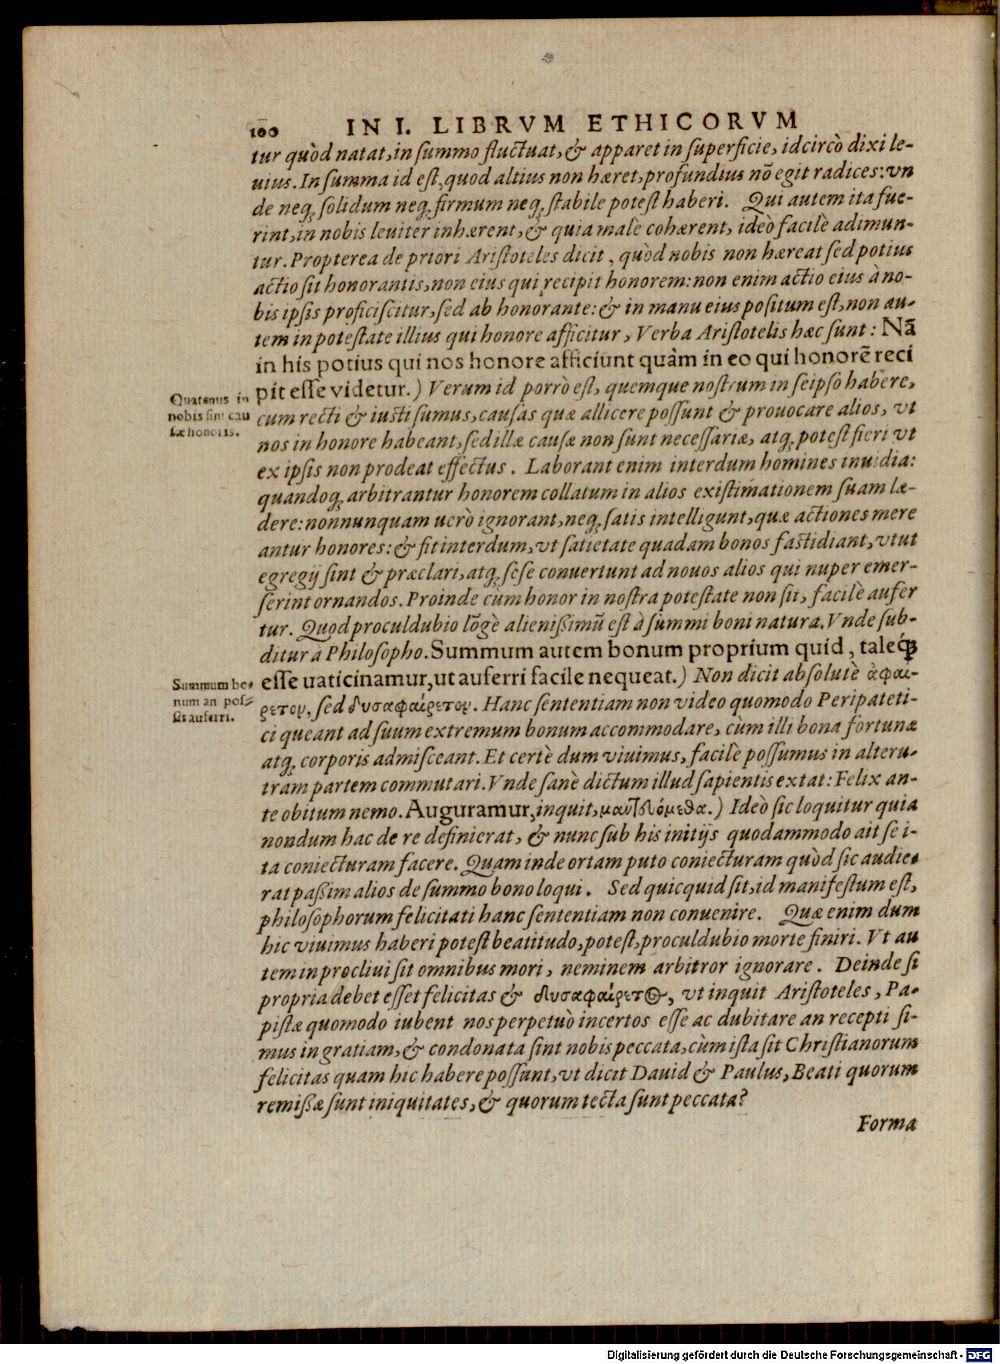 100 IN I. LIBRVM ETHICORVM
tur quòd natat, in summo fluctuat, & apparet in superficie, idcircò dixi le-
uius. In summa id est, quod altius non hæret, profundius nõ egit radices: vn
de neq; solidum neq; firmum neq; stabile potest haberi. Qui autem ita fue-
rint, in nobis leuiter inhærent, & quia malè cohærent, ideò facilè adimun-
tur. Propterea de priori Aristoteles dicit, quòd nobis non hæreat sed potius
actio sit honorantis, non eius qui recipit honorem: non enim actio eius à no-
bis ipsis proficiscitur, sed ab honorante: & in manu eius positum est, non au-
tem in potestate illius qui honore afficitur, Verba Aristotelis hæc sunt: Nã
in his potius qui nos honore afficiunt quàm in eo qui honorẽ reci
pit esse videtur.) Verum id porrò est, quemque nostrum in seipso habere,
Quatenus in
nobis sint cau
sæ honoris.
cum recti & iusti sumus, causas quæ allicere possunt & prouocare alios, vt
nos in honore habeant, sed illæ causæ non sunt necessariæ, atq; potest fieri vt
ex ipsis non prodeat effectus. Laborant enim interdum homines inuidia:
quandoq; arbitrantur honorem collatum in alios existimationem suam læ-
dere: nonnunquam uerò ignorant, neq; satis intelligunt, quæ actiones mere
antur honores: & fit interdum, vt satietate quadam bonos fastidiant, vtut
egregij sint & præclari, atq; sese conuertunt ad nouos alios qui nuper emer-
serint ornandos. Proinde cùm honor in nostra potestate non sit, facilè aufer
tur. Quod proculdubio lõgè alienißimũ est à summi boni natura. Vnde sub-
ditur à Philosopho. Summum autem bonum proprium quid, taleq́;
esse uaticinamur, ut auferri facile nequeat.) Non dicit absolutè ἀφαι-
Summum bo-
num an pos-
sit auferri.
ρετον, sed δυσαφαίρετον. Hanc sententiam non video quomodo Peripateti-
ci queant ad suum extremum bonum accommodare, cùm illi bona fortunæ
atq; corporis admisceant. Et certè dum viuimus, facilè possumus in alteru-
tram partem commutari. Vnde sanè dictum illud sapientis extat: Felix an-
te obitum nemo. Auguramur, inquit, μαντευόμεθα.) Ideò sic loquitur quia
nondum hac de re definierat, & nunc sub his initijs quodammodo ait se i-
ta coniecturam facere. Quam inde ortam puto coniecturam quòd sic audie-
rat paßim alios de summo bono loqui. Sed quicquid sit, id manifestum est,
philosophorum felicitati hanc sententiam non conuenire. Quæ enim dum
hic viuimus haberi potest beatitudo, potest, proculdubio morte finiri. Vt au
tem in procliui sit omnibus mori, neminem arbitror ignorare. Deinde si
propria debet esset felicitas & δυσαφαίρετος, vt inquit Aristoteles, Pa-
pistæ quomodo iubent nos perpetuò incertos esse ac dubitare an recepti si-
mus in gratiam, & condonata sint nobis peccata, cùm ista sit Christianorum
felicitas quam hic habere possunt, vt dicit Dauid & Paulus, Beati quorum
remißæ sunt iniquitates, & quorum tecta sunt peccata?
Forma
Digitalisierung gefördert durch die Deutsche Forschungsgemeinschaft - DFG